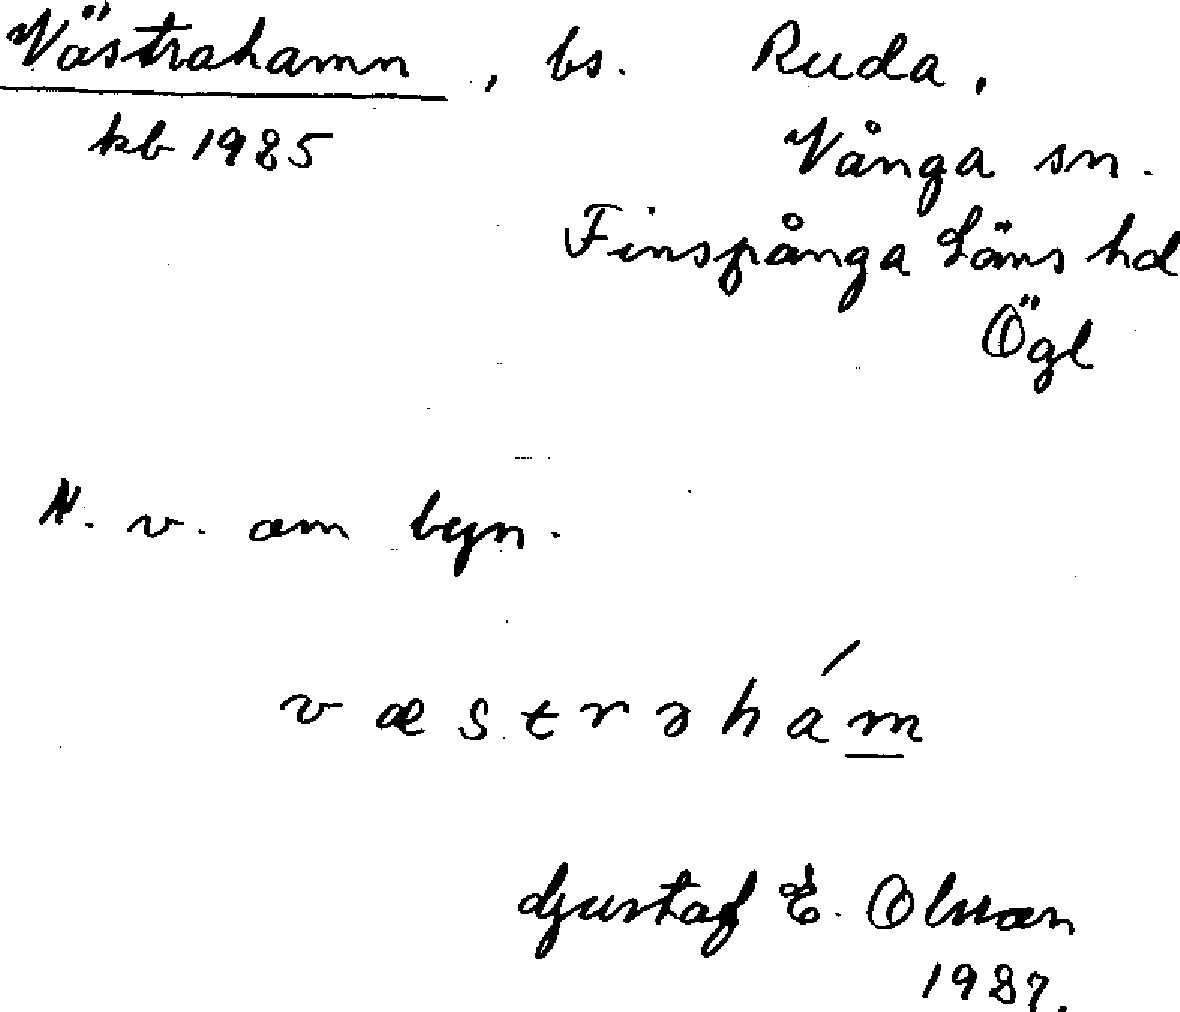 Västrahamn, bs. Ruda,
kb 1985
Vånga sn.
Finspånga Läns hd
Ögl
N. v. om byn.
væstrəhám
Gustaf E. Olsson
1987.